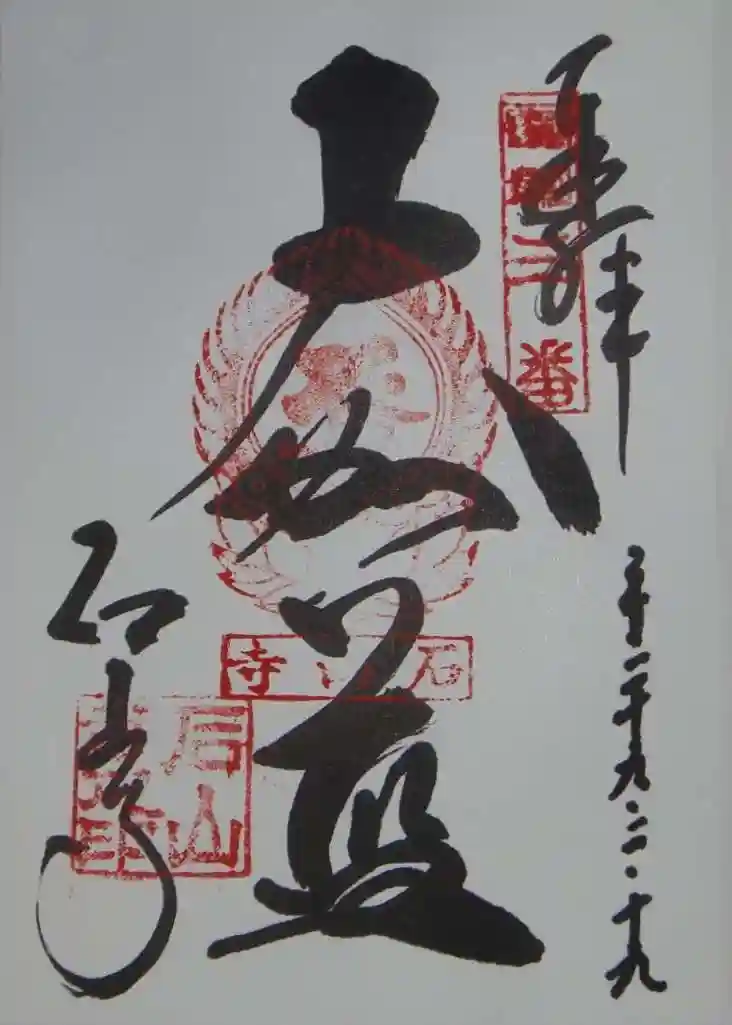 奉拝
西國十三番
平二十九・二・十九
大伽藍
石山寺
石山寺
石山寺